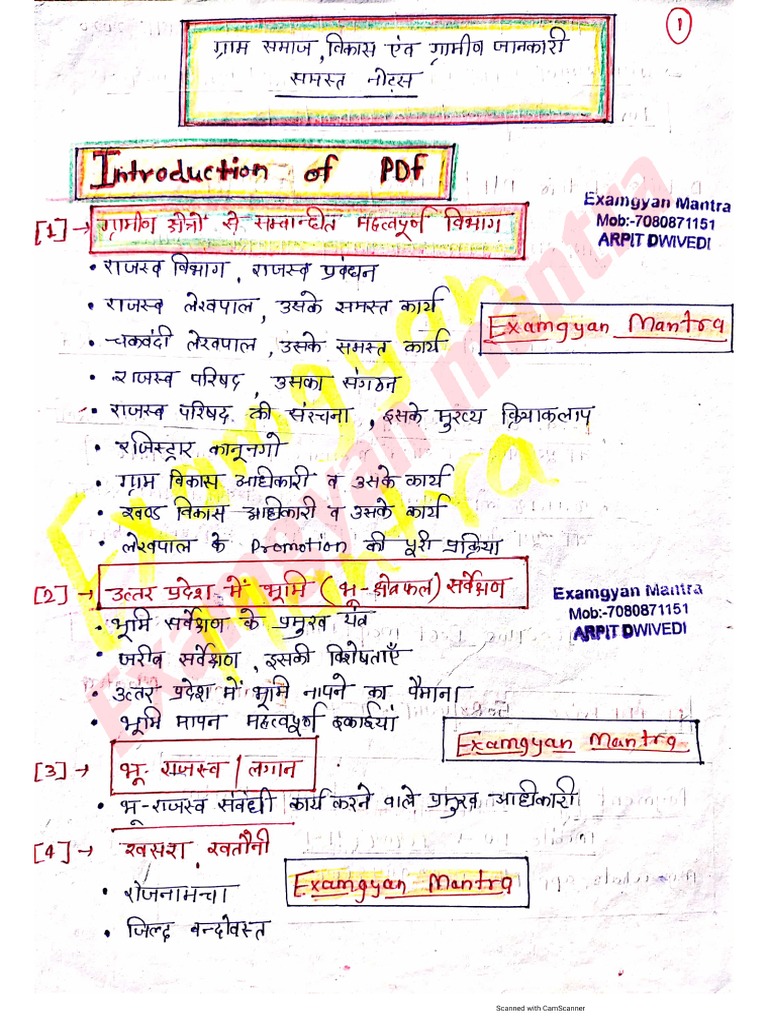 1
ग्राम समाज, विकास एंव ग्रामीण जानकारी
समस्त नोट्स
Introduction of PDf
Examgyan Mantra
Mob:-7080871151
ARPIT DWIVEDI
[1] → ग्रामीण क्षेत्रों से सम्बान्धीत महत्वपूर्ण विभाग
• राजस्व विभाग, राजस्व प्रबंधन
• राजस्व लेखपाल, उसके समस्त कार्य
Examgyan Mantra
• चकवंदी लेखपाल, उसके समस्त कार्य
• राजस्व परिषद, उसका संगठन
• राजस्व परिषद की संरचना, इसके मुख्य क्रियाकलाप
• रजिस्ट्रार कानूनगो
• ग्राम विकास आधीकारी व उसके कार्य
• खण्ड विकास आधीकारी व उसके कार्य
• लेखपाल के Promotion की पूरी प्रक्रिया
[2] → उत्तर प्रदेश में भूमि (भू-क्षेत्रफल) सर्वेक्षण
Examgyan Mantra
Mob:-7080871151
ARPIT DWIVEDI
• भूमि सर्वेक्षण के प्रमुख यंत्र
• जरीब सर्वेक्षण, इसकी विशेषताएँ
• उत्तर प्रदेश में भूमि नापने का पैमाना
• भूमि मापन महत्वपूर्ण इकाईयां
Examgyan Mantra
[3] → भू-राजस्व/लगान
• भू-राजस्व संबंधी कार्य करने वाले प्रमुख आधीकारी
[4] → खसरा, खतौनी
Examgyan Mantra
• रोजनामचा
• जिल्द बन्दोवस्त
Examgyan Mantra
Examgyan mantra
Scanned with CamScanner